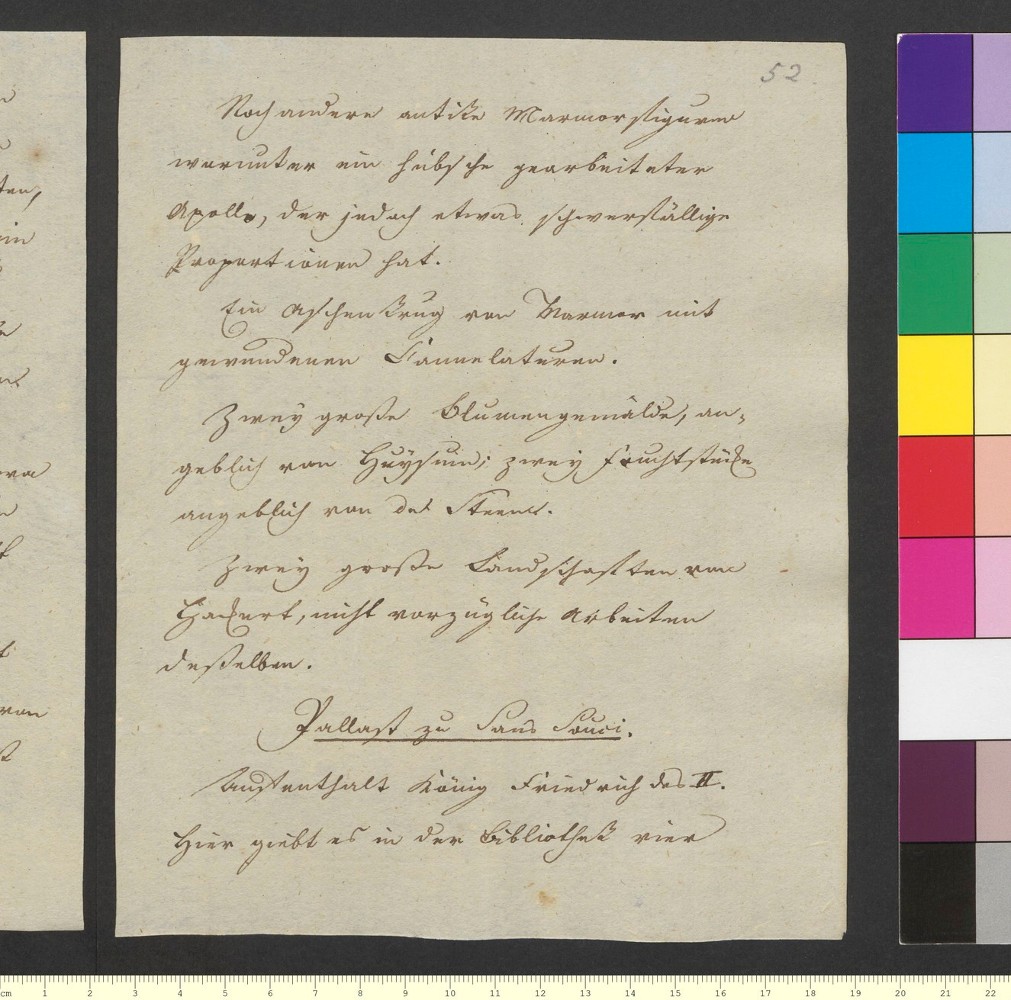 52
Noch andere antike Marmorfiguren
worunter ein hübsche gearbeiteter
Apollo, der jedoch etwas schwerfällige
Proportionen hat.
Ein Aschenkrug von Marmor mit
gewundenen Cannelaturen.
Zwey große Blumengemälde, an-
geblich von Huysum; zwey Fruchtstücke
angeblich von de
Zwey große Landschaften von
Hackert, nicht vorzügliche Arbeiten
deßelben.
Pallast zu Sans Souci.
Aufenthalt König Friedrich des II.
Hier giebt es in der Bibliothek vier